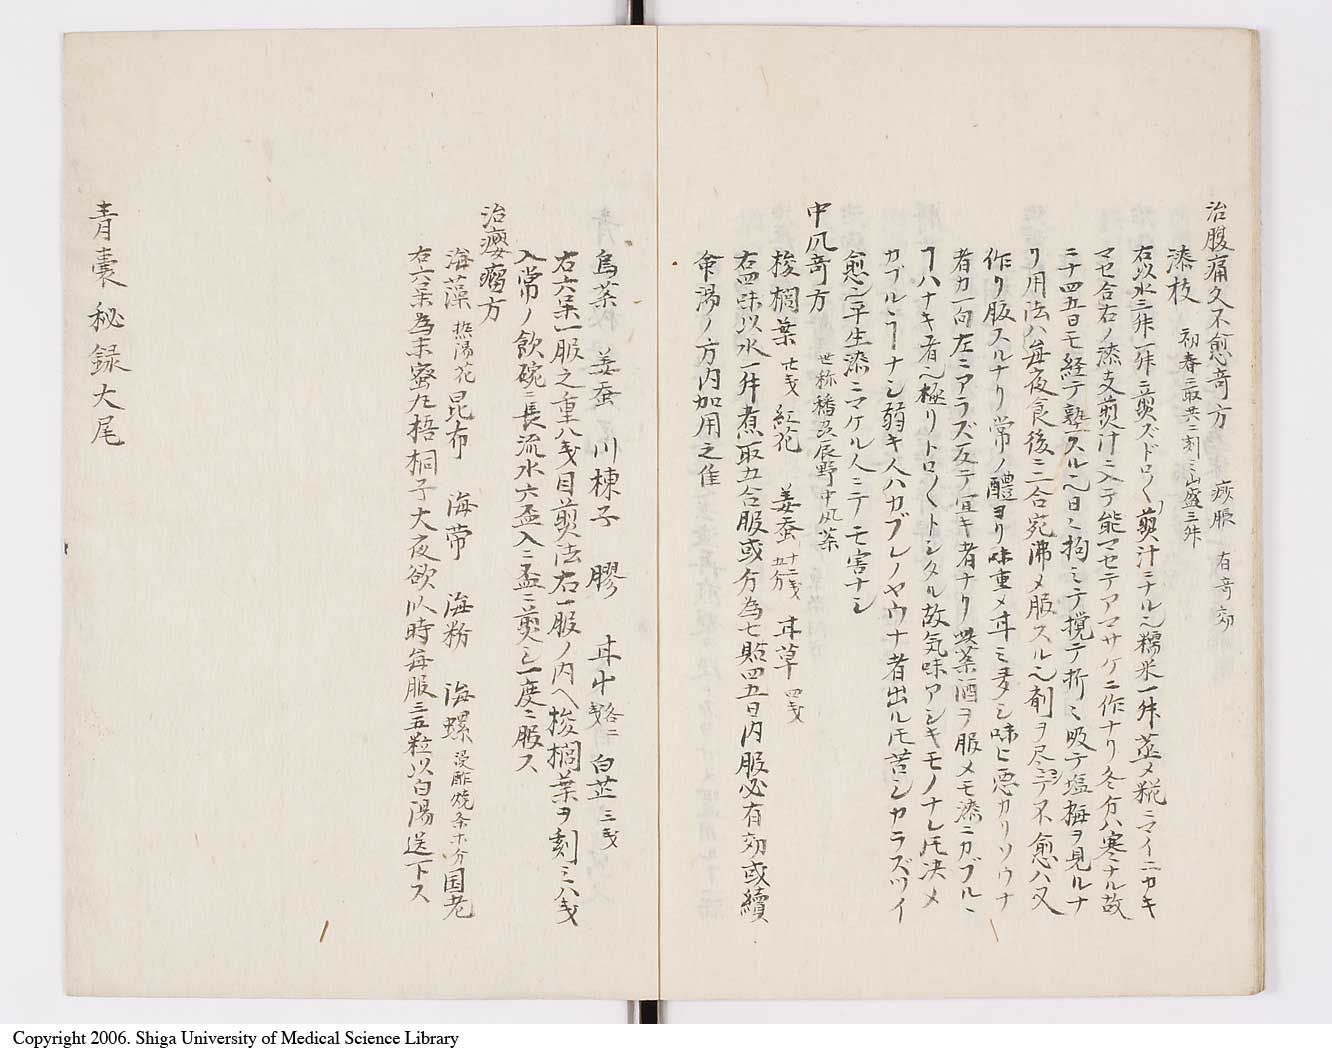 治腹痛久不愈奇方　疲脹　有奇効
漆枝　初春ニ取共ニ刻ミ山盛三舛
右以水三舛一舛ニ煎ズドロ〱煎汁ニナル也糯米一舛蒸メ糀ニマイニカキ
マセ合右ノ漆支煎汁ニ入テ能マセテアマサケニ作ナリ冬分ハ寒ナル故
ニ十四五日モ経テ熟スル也日ミ拘ミテ撹テ折ミ吸テ塩梅ヲ見ルナ
リ用法ハ毎夜食後ニ二合宛沸メ服スル也剤ヲ尽シテ不愈ハ又
作リ服スルナリ常ノ醴ヨリ味重メ甘ミ多シ味ヒ悪カリソウナ
者カ一向左ニアラズ反テ宜キ者ナリ此薬酒ヲ服メモ漆ニカブルヽ
ヿハナキ者也極リトロ〱トシタル故気味アシキモノナレ𪜈决メ
カブルヽヿナシ弱キ人ハカブレノヤウナ者出ル𪜈苦シカラズツイ
愈也平生漆ニマケル人ニテモ害ナシ
中风奇方　世称播丒辰野中风薬
棕櫚葉　廿戋　紅花　姜蚕　十二戋五分　甘草　四戋
右四味以水一舛煮取五合服或分為七貼四五日内服必有効或續
命湯ノ方内加用之佳
烏薬　姜蚕　川楝子　膠　甘中　各二戋　白芷　三戋
右六味一服之重八戋目煎法右一服ノ内ヘ棕櫚葉ヲ刻ミ八戋
入常ノ飲碗ニ長流水六盃入二盃ニ煎シ一度ニ服ス
治癭瘤方
海藻　熱湯花　昆布　海帯　海粉　海螺　浸酢焼各ホ分　国老
右六味為末蜜丸梧桐子大夜欲臥時毎服三五粒以白湯送下ス
青嚢秘録大尾
Copyright 2006. Shiga University of Medical Science Library